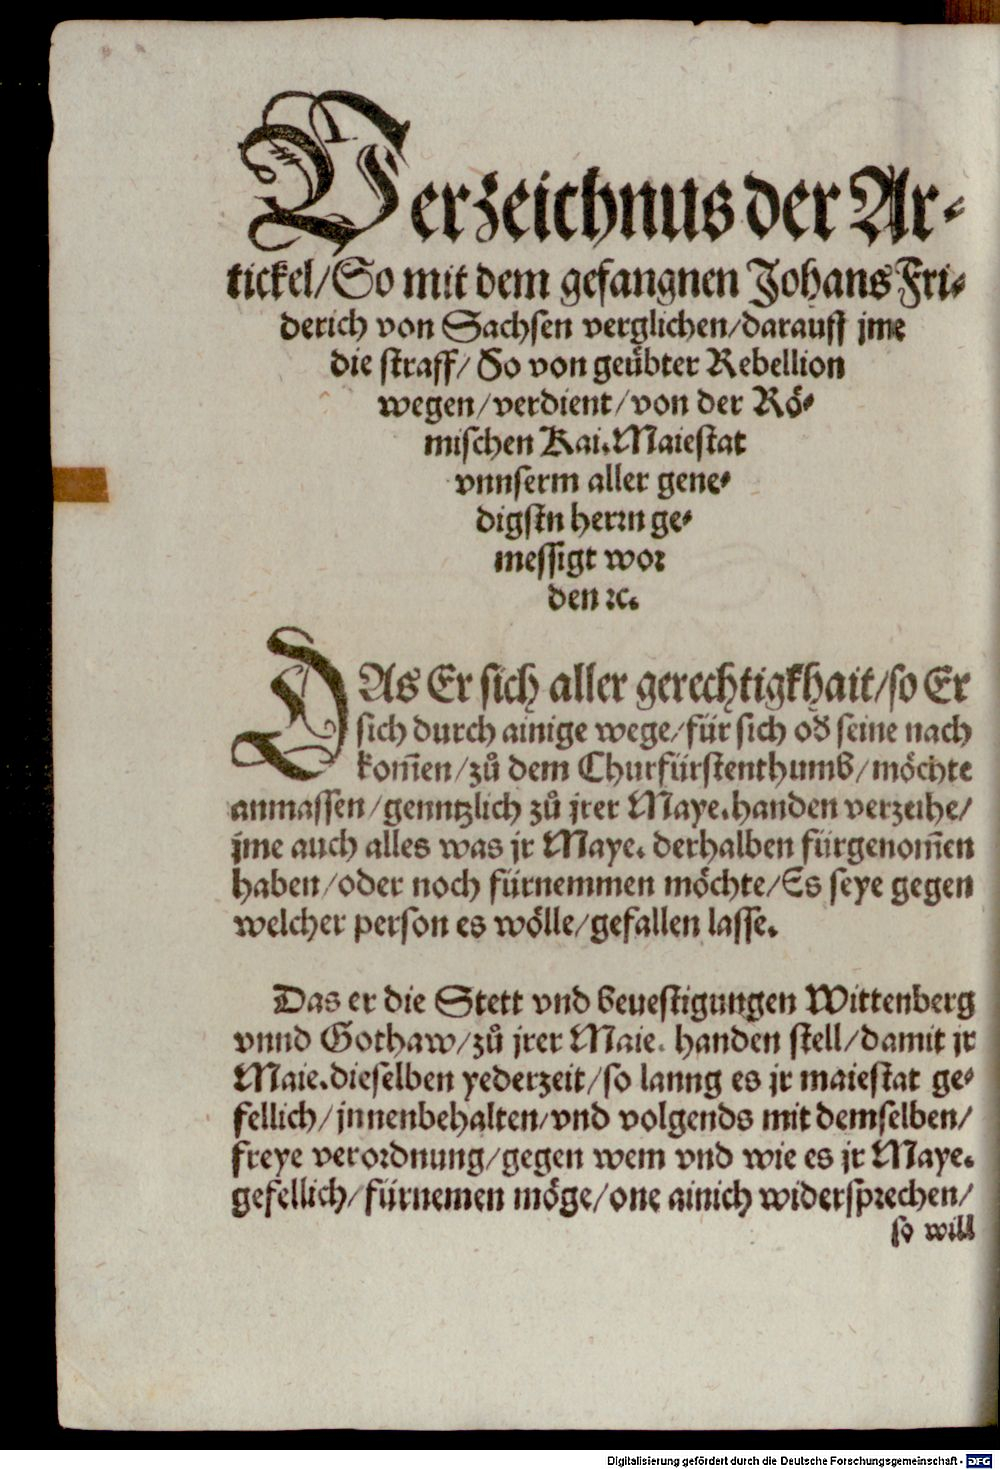 Verzeichnus der Ar⸗
tickel/So mit dem gefangnen Johans Fri⸗
derich von Sachsen verglichen/darauff jme
die straff/ So von geübter Rebellion
wegen/verdient/von der Rö⸗
mischen Kai.Maiestat
vnnserm aller gene⸗
digstn herrn ge⸗
messigt wor
den ꝛc.
DAs Er sich aller gerechtigkhait/so Er
sich durch ainige wege/für sich oď seine nach
kom̃en/zů dem Churfürstenthumb/möchte
anmassen/genntzlich zů jrer Maye.handen verzeihe/
jme auch alles was jr Maye. derhalben fürgenom̃en
haben/oder noch fürnemmen möchte/Es seye gegen
welcher person es wölle/gefallen lasse.
Das er die Stett vnd beuestigungen Wittenberg
vnnd Gothaw/zů jrer Maie. handen stell/damit jr
Maie.dieselben yederzeit/so lanng es jr maiestat ge⸗
fellich/jnnenbehalten/vnd volgends mit demselben/
freye verordnung/gegen wem vnd wie es jr Maye.
gefellich/fürnemen möge/one ainich widersprechen/
so will
Digitalisierung gefördert durch die Deutsche Forschungsgemeinschaft - DFG